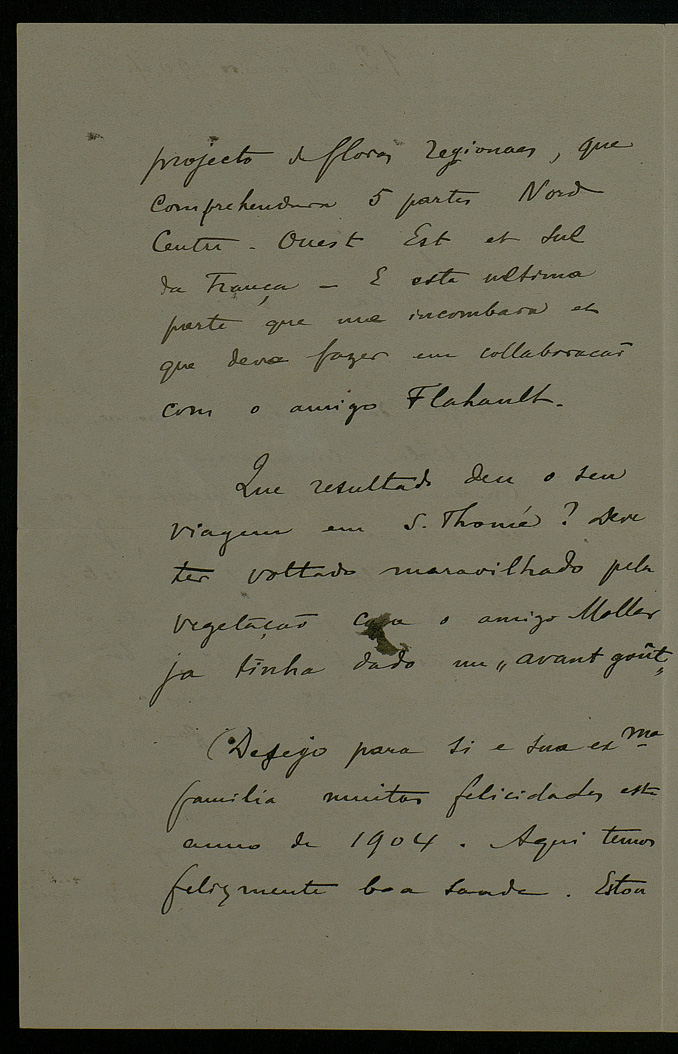 projecto de floras regionaes, que
comprehendera 5 partes Nord
Centre - Ouest Est et Sul
da França - E esta ultima
parte que me incombara et
que deve fazer em collaboracao
com o amigo Flahault.
Que resultado deu o seu
viagem em S. Thomé? Deve
ter voltado maravilhado pela
vegetação o amigo Moller
ja tinha dado un „avant goût„
Desejo para si e sua exma
familia muitas felicidades este
anno de 1904. Aqui temos
felizmente boa saude. Estou